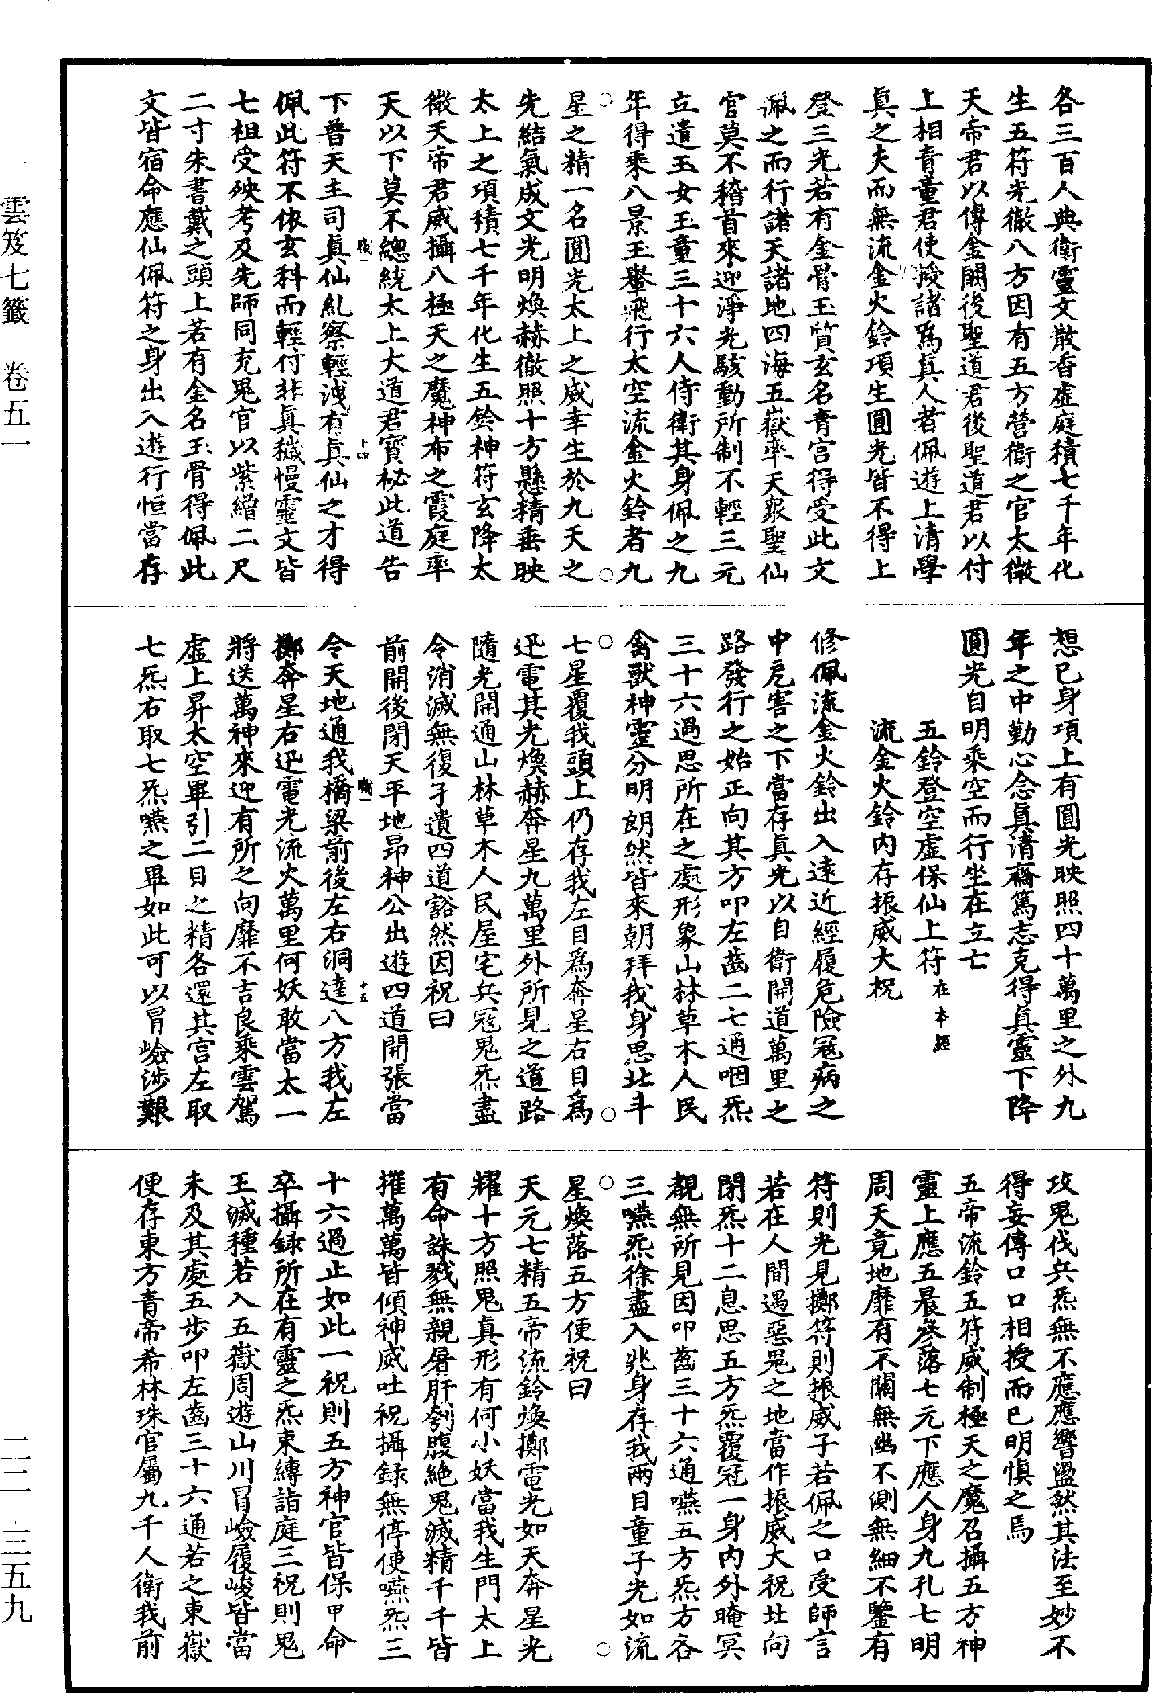 各三百人典衛靈文散香虛庭積七千年化
生五符光徹八方因有五方營衛之官太微
天帝君以傳金闕後聖道君後聖道君以付
上相青童君使授諸爲真人者佩遊上清學
真之夫而無流金火鈴項生圓光皆不得上
登三光若有金骨玉質玄名青宮得受此文
佩之而行諸天諸地四海五嶽率天衆聖仙
官莫不稽首來迎淨光駭動所制不輕三元
立遣玉女玉童三十六人侍衛其身佩之九
年得乘八景玉轝飛行太空流金火鈴者九
星之精一名圓光太上之威章生於九天之
先結氣成文光明煥赫徹照十方懸精垂映
太上之項積七千年化生五鈴神符玄降太
微天帝君威攝八極天之魔神布之霞庭率
天以下莫不總統太上大道君寶祕此道告
下普天主司真仙糺察輕洩有真仙之才得
佩此符不依玄科而輕付非真穢慢靈文皆
七祖受殃考及先師同充鬼官以紫繒二尺
二寸朱書戴之頭上若有金名玉骨得佩此
文皆宿命應仙佩符之身出入遊行恒當存
想已身項上有圓光映照四十萬里之外九
年之中勤心念真清齋篤志克得真靈下降
圓光自明乘空而行坐在立亡
五鈴登空虛保仙上符在本經
流金火鈴內存振威大祝
修佩流金火鈴出入遠近經履危險冦病之
中危害之下當存真光以自衛開道萬里之
路發行之始正向其方叩左齒二七通咽炁
三十六過思所在之處形象山林草木人民
禽獸神靈分明朗然皆來朝拜我身思北斗
七星覆我頭上仍存我左目爲奔星右目爲
迅電其光煥赫奔星九萬里外所見之道路
隨光開通山林草木人民屋宅兵冦鬼炁盡
令消滅無復孑遺四道豁然因祝曰
前開後閉天平地昂神公出遊四道開張當
令天地通我橋梁前後左右洞達八方我左
擲奔星右迅電光流火萬里何妖敢當太一
將送萬神來迎有所之向靡不吉良乘雲駕
虛上昇太空畢引二目之精各還其宮左取
七炁右取七炁嚥之畢如此可以冒嶮涉艱
攻鬼伐兵炁無不應應響盪然其法至妙不
得妄傳口口相授而已明慎之焉
五帝流鈴五符威制極天之魔召攝五方神
靈上應五晨參落七元下應人身九孔七明
周天竟地靡有不關無幽不測無細不鑒有
符則光見擲符則振威子若佩之口受師言
若在人間遇惡鬼之地當作振威大祝北向
閉炁十二息思五方炁覆冠一身內外晻冥
覩無所見因叩齒三十六通嚥五方炁方各
三嚥炁徐盡入兆身存我兩目童子光如流
星煥落五方便祝曰
天元七精五帝流鈴煥擲電光如天奔星光
耀十方照鬼真形有何小妖當我生門太上
有命誅戮無親屠肝刳腹絶鬼滅精千千皆
摧萬萬皆傾神威吐祝攝録無停便嚥炁三
十六過止如此一祝則五方神官皆保甲命
卒攝録所在有靈之炁束縛詣庭三祝則鬼
王滅種若入五嶽周遊山川冒嶮履峻皆當
未及其處五步叩左齒三十六通若之東嶽
便存東方青帝希林珠官屬九千人衛我前
雲笈七籤 卷五一
二二 三五九